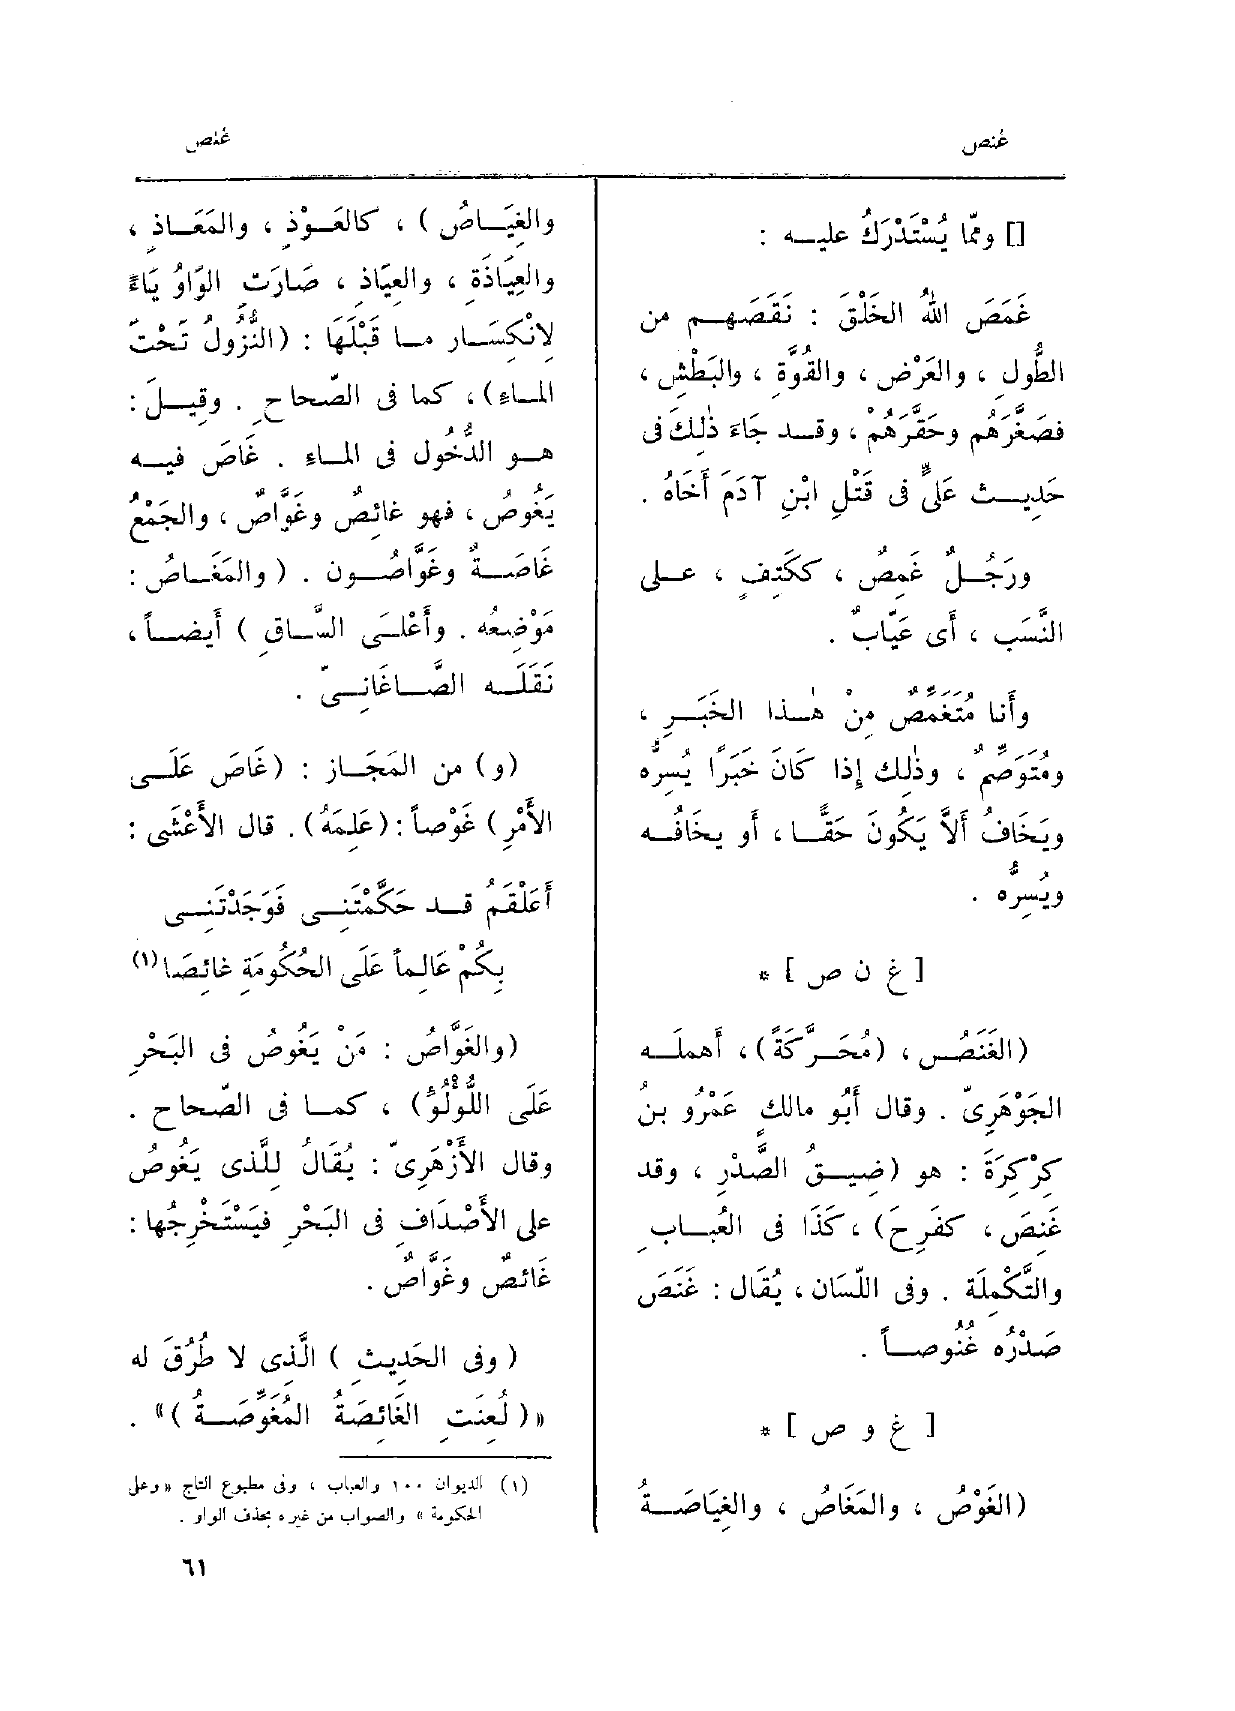 غنص
غنص
[] وممّا يُسْتَدْرَكُ عليه :
غَمَصَ اللهُ الخَلْقَ : نَقَصَهم من
الطُّول ، والعَرْض ، والقُوَّةِ ، والبَطْشِ ،
فصَغَّرَهُم وحَقَّرَهُمْ ، وقد جَاءَ ذٰلِكَ فى
حَدِيث عَلىٍّ فى قَتْلِ ابْنِ آدَمَ أَخَاهُ .
ورَجُلٌ غَمِصٌ ، ككَتِفٍ ، على
النَّسَب ، أَى عَيّابٌ .
وأَنا مُتَغَمِّصٌ مِنْ هٰذا الخَبَرِ ،
ومُتَوَصِّمٌ ، وذٰلك إِذا كَانَ خَبَرًا يُسِرُّه
ويَخَافُ أَلاَّ يَكُونَ حَقًّا ، أَو يخَافُه
ويُسِرُّه .
[ غ ن ص ] *
(الغَنَصُ ، (مُحَرَّكَةً) ، أَهملَه
الجَوْهَرِىّ . وقال أَبُو مالكٍ عَمْرُو بنُ
كِرْكِرَةَ : هو (ضِيقُ الصَّدْرِ ، وقد
غَنِصَ ، كفَرِحَ) ، كَذَا فى العُبابِ
والتَّكْمِلَة . وفى اللّسَان ، يُقَال : غَنَصَ
صَدْرُه غُنُوصاً .
[ غ و ص ] *
(الغَوْصُ ، والمَغَاصُ ، والغِيَاصَةُ
والغِيَاصُ ) ، كالعَوْذِ ، والمَعَاذِ ،
والعِيَاذَةِ ، والعِيَاذِ ، صَارَت الوَاوُ يَاءً
لِانْكِسَارِ ما قَبْلَهَا : (النُّزُولُ تَحْتَ
الماءِ) ، كما فى الصّحاحِ . وقِيلَ :
هو الدُّخُول فى الماءِ . غَاصَ فيه
يَغُوصُ ، فهو غائِصٌ وغَوَّاصٌ ، والجَمْعُ
غَاصَةٌ وغَوَّاصُون . ( والمَغَاصُ :
مَوْضِعُه . وأَعْلَى السَّاقِ ) أَيضاً ،
نَقَلَه الصَّاغَانِىّ .
(و) من المَجَاز : (غَاصَ عَلَى
الأَمْرِ) غَوْصاً : (عَلِمَهُ) . قال الأَعْشَى :
أَعَلْقَمُ قد حَكَّمْتَنِى فَوَجَدْتَنِى
بِكُمْ عَالِماً عَلَى الحُكُومَةِ غائِصَا (١)
(والغَوَّاصُ : مَنْ يَغُوصُ فى البَحْرِ
عَلَى اللُّؤْلُؤِ) ، كما فى الصّحاح .
وقال الأَزْهَرِىّ : يُقَالُ لِلَّذى يَغُوصُ
على الأَصْدَافِ فى البَحْرِ فيَسْتَخْرِجُها :
غَائصٌ وغَوَّاصٌ .
( وفى الحَدِيثِ ) الَّذِى لا طُرُقَ له
« ( لُعِنَتِ الغَائِصَةُ المُغَوِّصَةُ ) » .
(١) الديوان ١٠٠ والعباب ، وفى مطبوع التاج « وعلى
الحكومة » والصواب من غيره بحذف الواو .
٦١